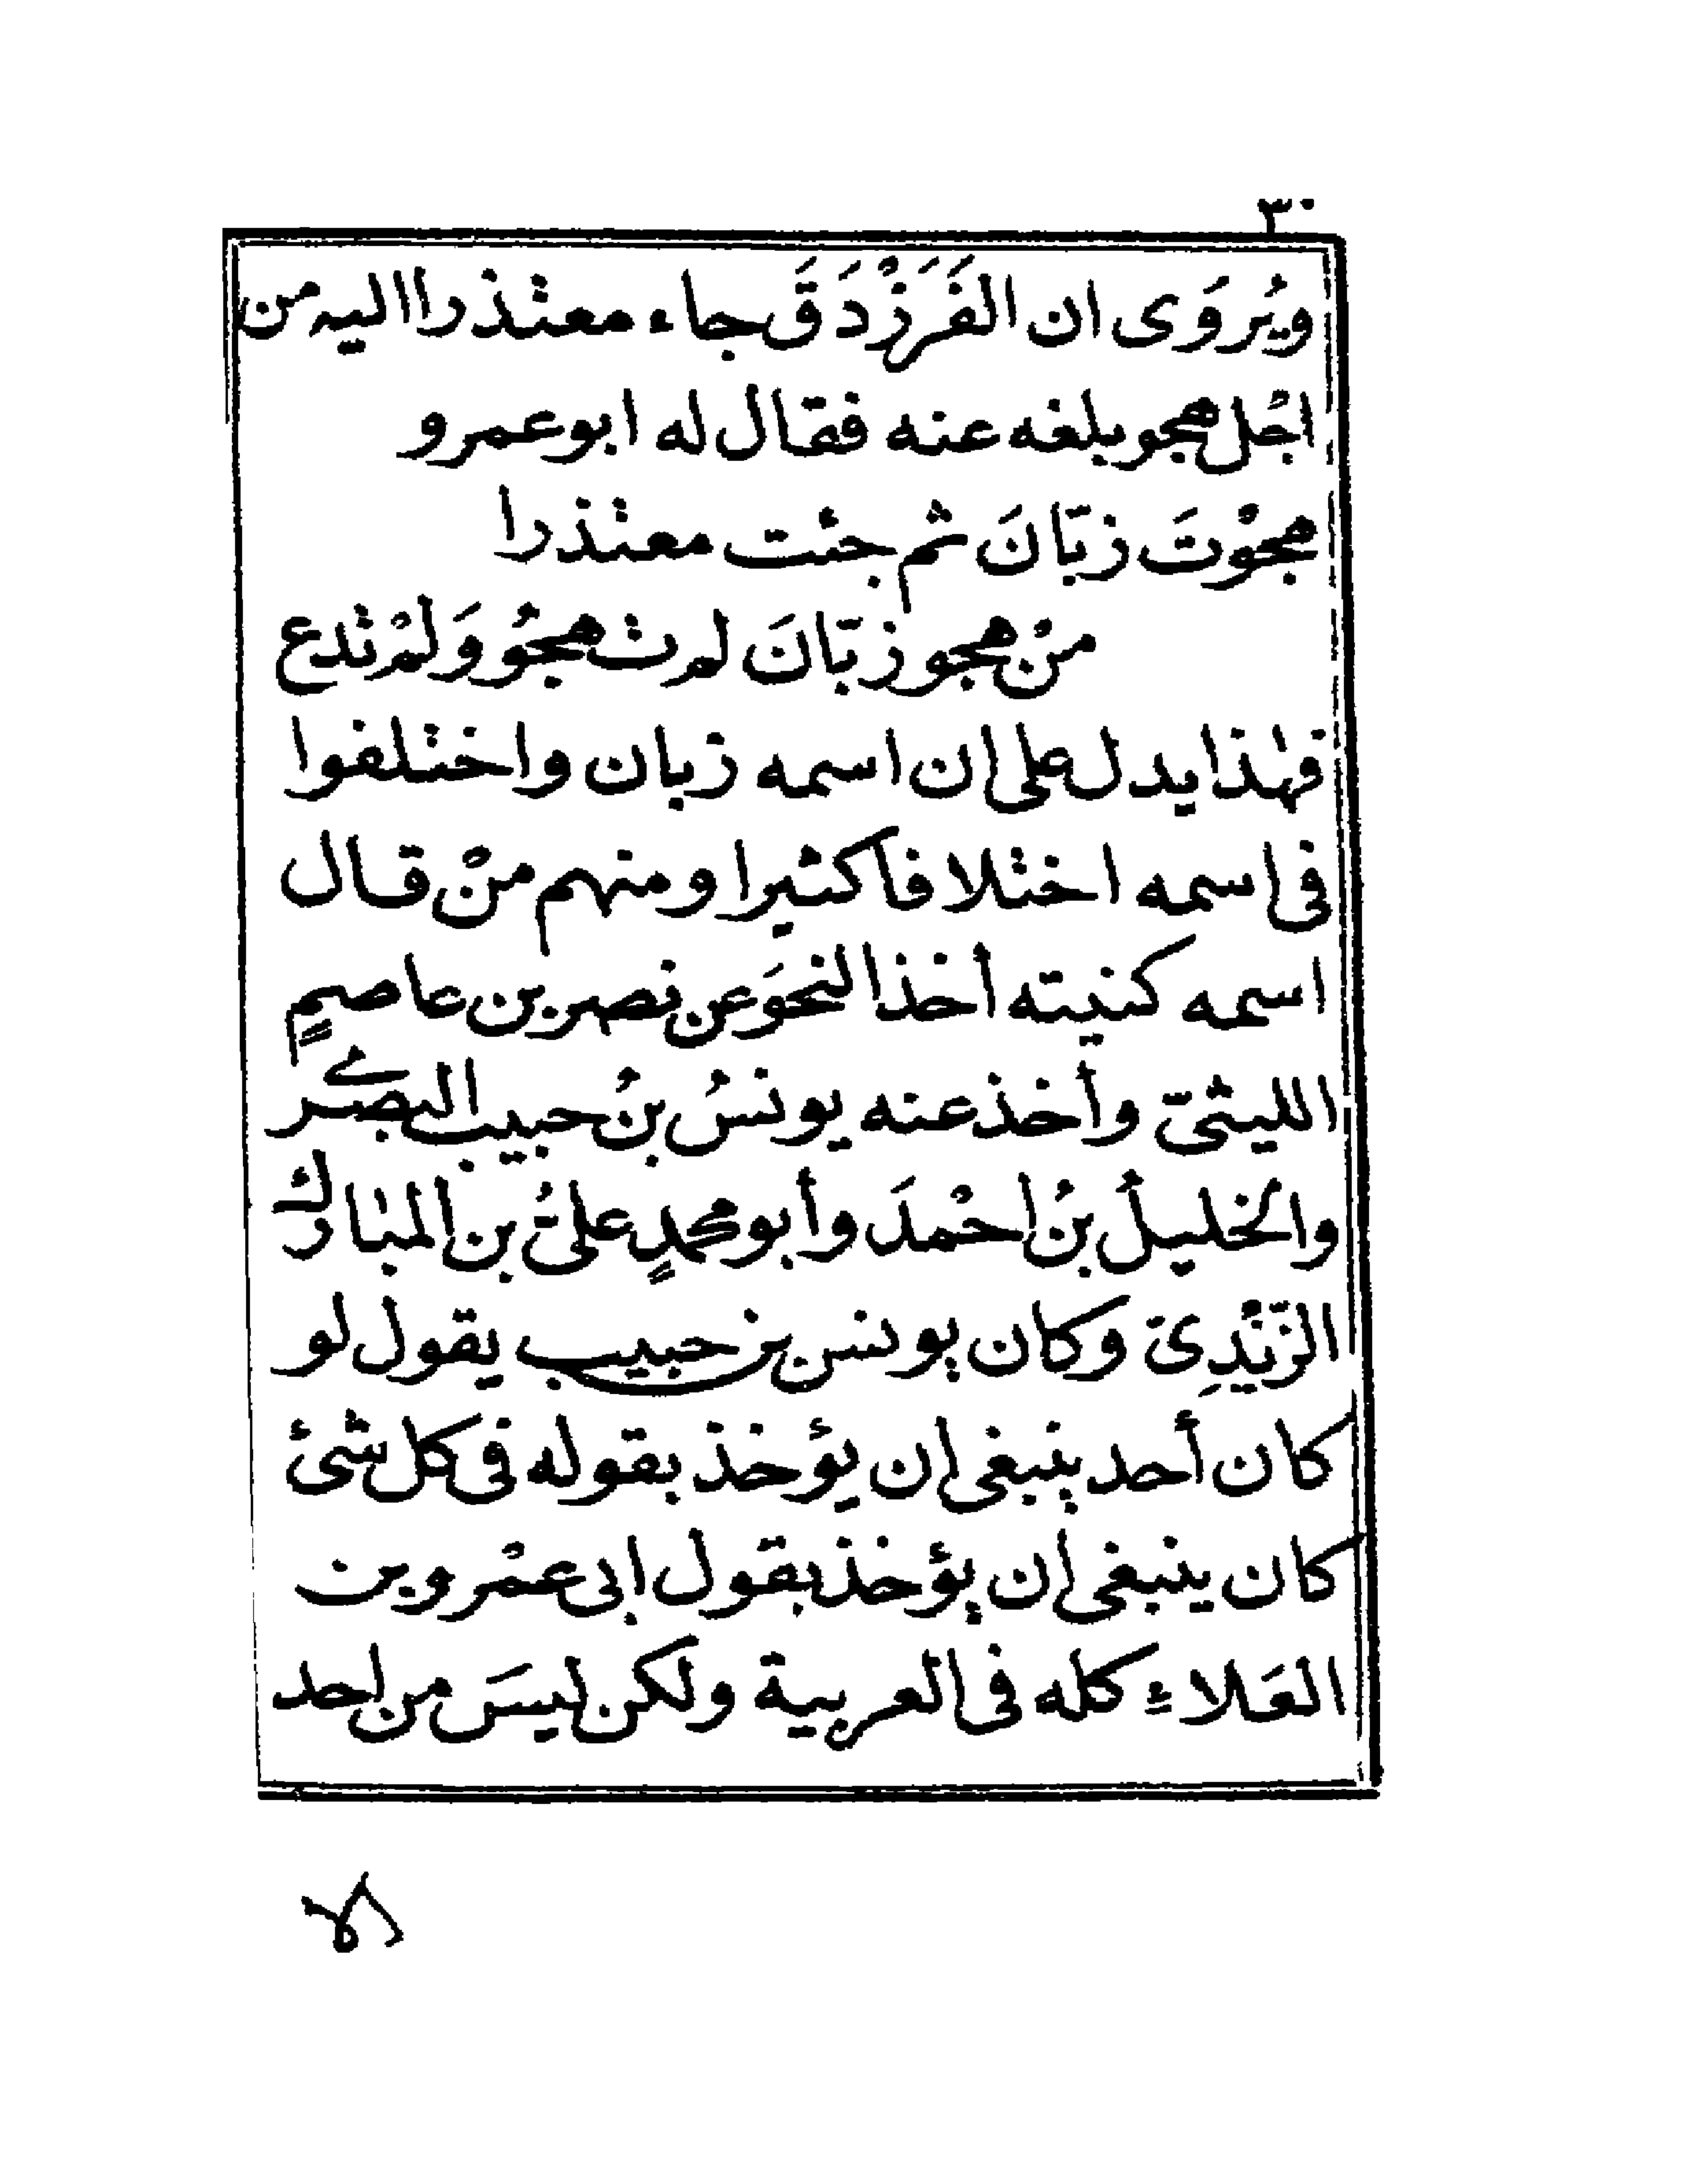 ٣٠
ويُروَى ان الفَرَزْدَقَ جاء معتذرا اليه من
اجْل هجو بلغه عنه فقال له ابو عمرو
هجوْتَ زبّانَ ثم جئت معتذرا
منْ هجو زبّانَ لم تهجُو وَلمْ تدع
فهذا يدل على ان اسمه زبان واختلفوا
فى اسمه اختلافا كثيرا ومنهم منْ قال
اسمه كنيته أخذ النحوَ عن نصر بن عاصمٍ
الليثىّ وأخذ عنه يونسُ بنُ حبيب البصرى
والخليلُ بنُ احْمدَ وأبو محمدٍ علىُّ بن المبارك
الزّيْدِىّ وكان يونس بن حبيب يقول لو
كان أحد ينبغى ان يؤخذ بقوله فى كل شئ
كان ينبغى أن يؤخذ بقول ابى عمْرو بن
العَلاءِ كله فى العربية ولكن ليسَ من احد
الا